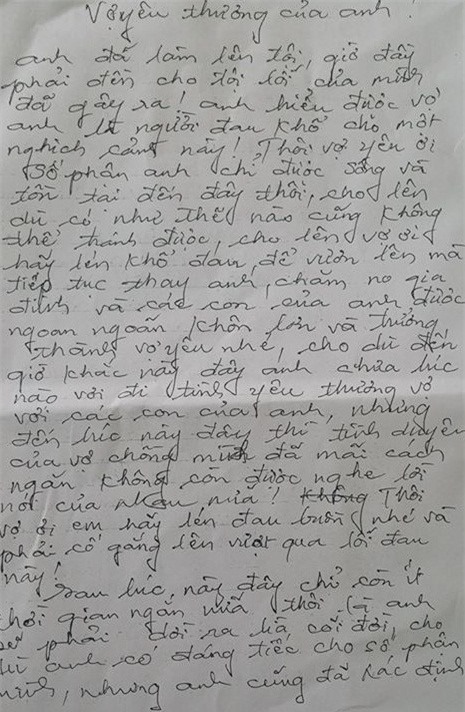 Vợ yêu thương của anh!
anh đã làm lên tội, giờ đây
phải đền cho tội lỗi của mình
đã gây ra! anh hiểu được vợ
anh là người đau khổ cho một
nghịch cảnh này! Thôi vợ yêu ơi
Số phận anh chỉ được sống và
tồn tại đến đây thôi, cho lên
dù có như thế nào cũng không
thể tránh được, cho lên vợ ơi
hãy lén khổ đau, để vươn lên mà
tiếp tục thay anh, chăm no gia
đình và các con của anh được
ngoan ngoãn khôn lớn và trưởng
thành vợ yêu nhé, cho dù đến
giờ khắc này đây anh chưa lúc
nào vơi đi tình yêu thương vợ
với các con của anh, nhưng
đến lúc này đây thì tình duyên
của vợ chồng mình đã mãi cách
ngăn không còn được nghe lời
nói của nhau nữa! Thôi
vợ ơi em hãy lén đau buồn nhé và
phải cố gắng lên vượt qua lỗi đau
này!
Sau lúc, này đây chỉ còn ít
thời gian ngắn nữa thôi là anh
sẽ phải dời ra là cõi đời, cho
dù anh có đáng tiếc cho số phận
mình, nhưng anh cũng đã xác định